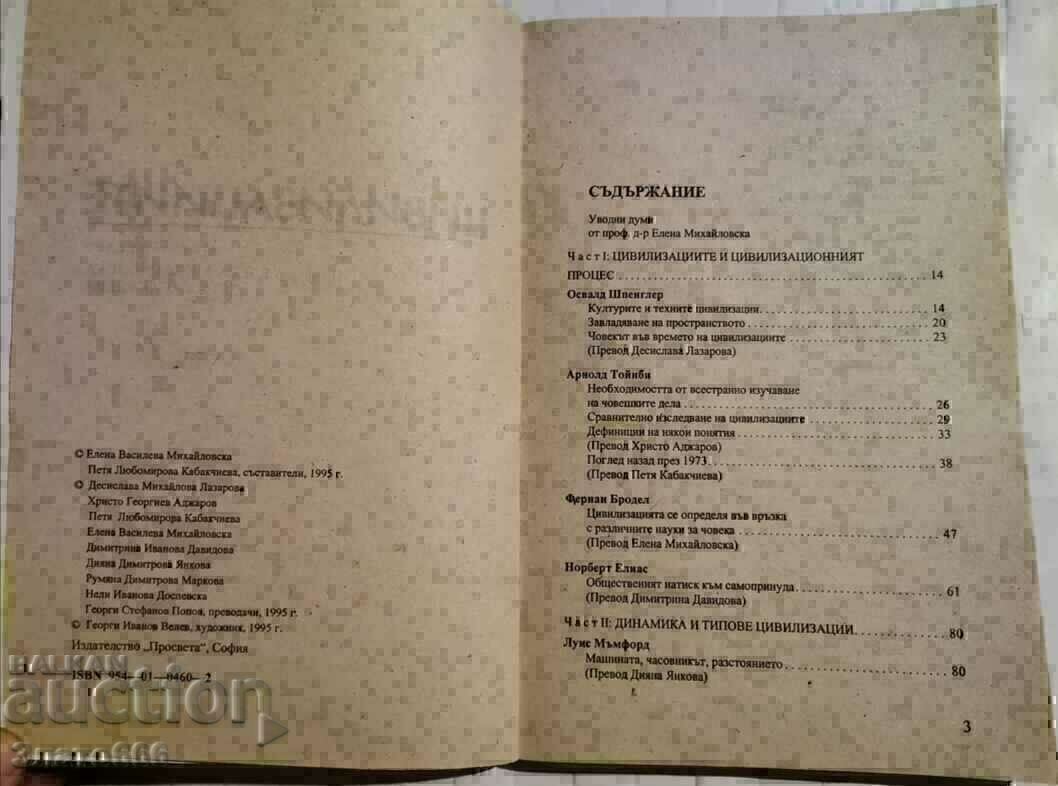 © Елена Василева Михайловска
Петя Любомирова Кабакчиева, съставители, 1995 г.
© Десислава Михайлова Лазарова
Христо Георгиев Аджаров
Петя Любомирова Кабакчиева
Елена Василева Михайловска
Димитрина Иванова Давидова
Дияна Димитрова Янкова
Румяна Димитрова Маркова
Нели Иванова Доспевска
Георги Стефанов Попов, преводачи, 1995 г.
© Георги Иванов Велев, художник, 1995 г.
Издателство „Просвета“, София
ISBN 954–01–0460–2
BALKAN
auction
3naro666
СЪДЪРЖАНИЕ
Уводни думи
от проф. д-р Елена Михайловска
Част I: ЦИВИЛИЗАЦИИТЕ И ЦИВИЛИЗАЦИОННИЯТ
ПРОЦЕС 14
Освалд Шпенглер
Културите и техните цивилизации 14
Завладяване на пространството 20
Човекът във времето на цивилизациите 23
(Превод Десислава Лазарова)
Арнолд Тойнби
Необходимостта от всестранно изучаване
на човешките дела 26
Сравнително изследване на цивилизациите 29
Дефиниции на някои понятия 33
(Превод Христо Аджаров)
Поглед назад през 1973 38
(Превод Петя Кабакчиева)
Фернан Бродел
Цивилизацията се определя във връзка
с различните науки за човека 47
(Превод Елена Михайловска)
Норберт Елиас
Общественият натиск към самопринуда 61
(Превод Димитрина Давидова)
Част II: ДИНАМИКА И ТИПОВЕ ЦИВИЛИЗАЦИИ 80
Луис Мъмфорд
Машината, часовникът, разстоянието 80
(Превод Дияна Янкова)
3